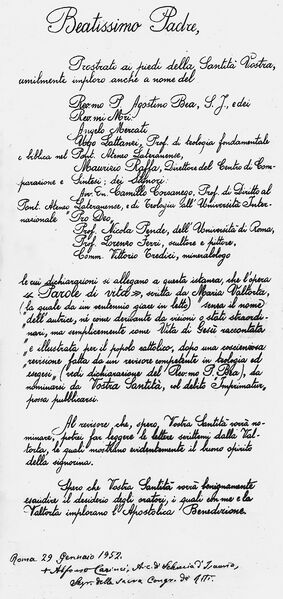 Beatissimo Padre,
Prostrati ai piedi della Santità Vostra,
umilmente imploro anche a nome del
Rev.mo P. Agostino Bea, S. J., e dei
Rev.mi Mri:
Angelo Mercati
Ugo Lattanzi, Prof. di teologia fondamentale
e biblica nel Pont. Ateneo Lateranense,
Maurizio Raffa, Direttore del Centro di Com-
parazione e Sintesi; dei signori
Avv. Cn. Camillo Corsanego, Prof. di Diritto al
Pont. Ateneo Lateranense, e di Teologia all'Università Inter-
nazionale Pro Deo,
Prof. Nicola Pende, dell'Università di Roma,
Prof. Lorenzo Ferri, scultore e pittore,
Comm. Vittorio Tredici, mineralogo
le cui dichiarazioni si allegano a questa istanza, che l'opera
« Parole di vita », scritta da Maria Valtorta,
(la quale da un ventennio giace in letto) senza il nome
dell'autrice, né come derivante da visioni o stati straordi-
nari, ma semplicemente come Vita di Gesù raccontata
e illustrata per il popolo cattolico, dopo una coscienziosa
revisione fatta da un revisore competente in teologia ed
esegesi, (vedi dichiarazione del Rev.mo P. Bea), da
nominarsi da Vostra Santità, col debito Imprimatur,
possa pubblicarsi.
Al revisore che, spero, Vostra Santità vorrà no-
minare, potrei far leggere le lettere scrittemi dalla Val-
torta, le quali mostrano evidentemente il buono spirito
della signorina.
Spero che Vostra Santità vorrà benignamente
esaudire il desiderio degli oratori, i quali con me e la
Valtorta implorano l'Apostolica Benedizione.
Roma 29 Gennaio 1952.
+ Alfonso Carinci, Arc. d'Seleucia d'Isauria,
Segr. della Sacra Congr. dei Riti.